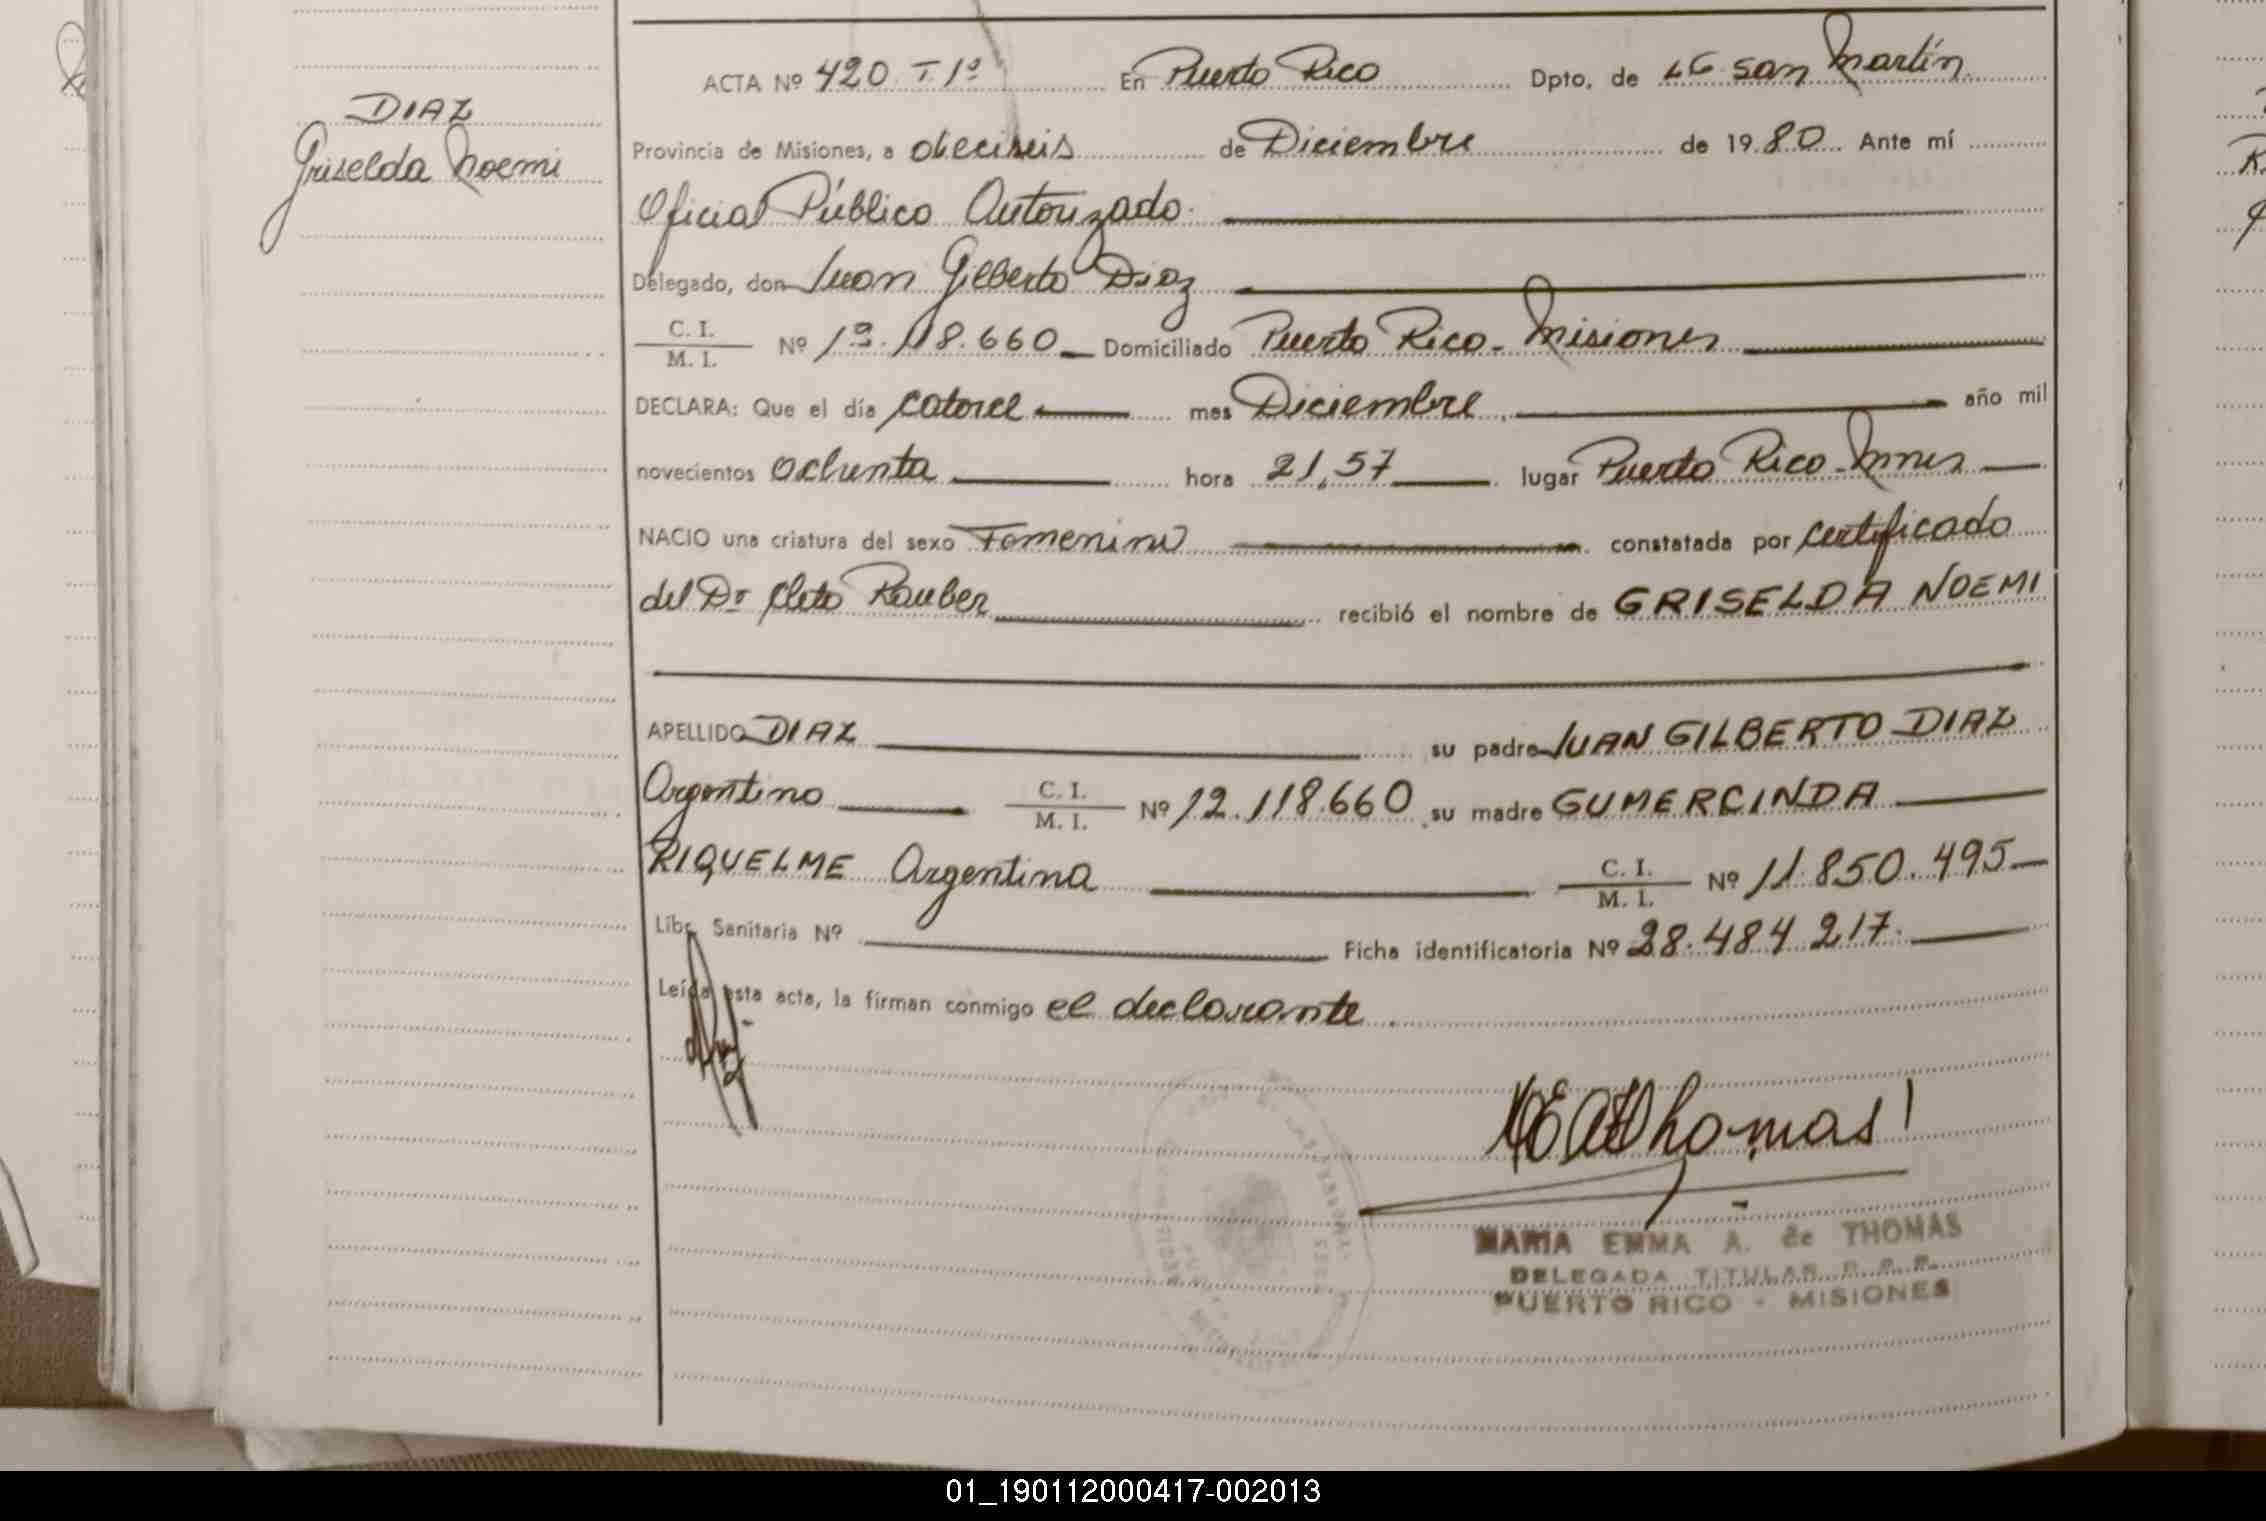 DIAZ
Griselda Noemi
ACTA Nº 420 T 1º En Puerto Rico Dpto, de LG San Martín
Provincia de Misiones, a dieciseis de Diciembre de 1980 Ante mí
Oficial Público Autorizado
Delegado, don Juan Gilberto Diaz
C. I.
M. I. Nº 12.118.660 Domiciliado Puerto Rico - Misiones
DECLARA: Que el día catorce mes Diciembre año mil
novecientos ochenta hora 21,57 lugar Puerto Rico - Mnes
NACIO una criatura del sexo Femenino constatada por certificado
del Dr Cleto Rauber recibió el nombre de GRISELDA NOEMI
APELLIDO DIAZ su padre JUAN GILBERTO DIAZ
Argentino C. I.
M. I. Nº 12.118.660 su madre GUMERCINDA
RIQUELME Argentina C. I.
M. I. Nº 11.850.495
Libr. Sanitaria Nº Ficha identificatoria Nº 28.484.217
Leída esta acta, la firman conmigo el declarante
MEAThomas
MARIA EMMA A. de THOMAS
DELEGADA TITULAR
PUERTO RICO - MISIONES
01_190112000417-002013